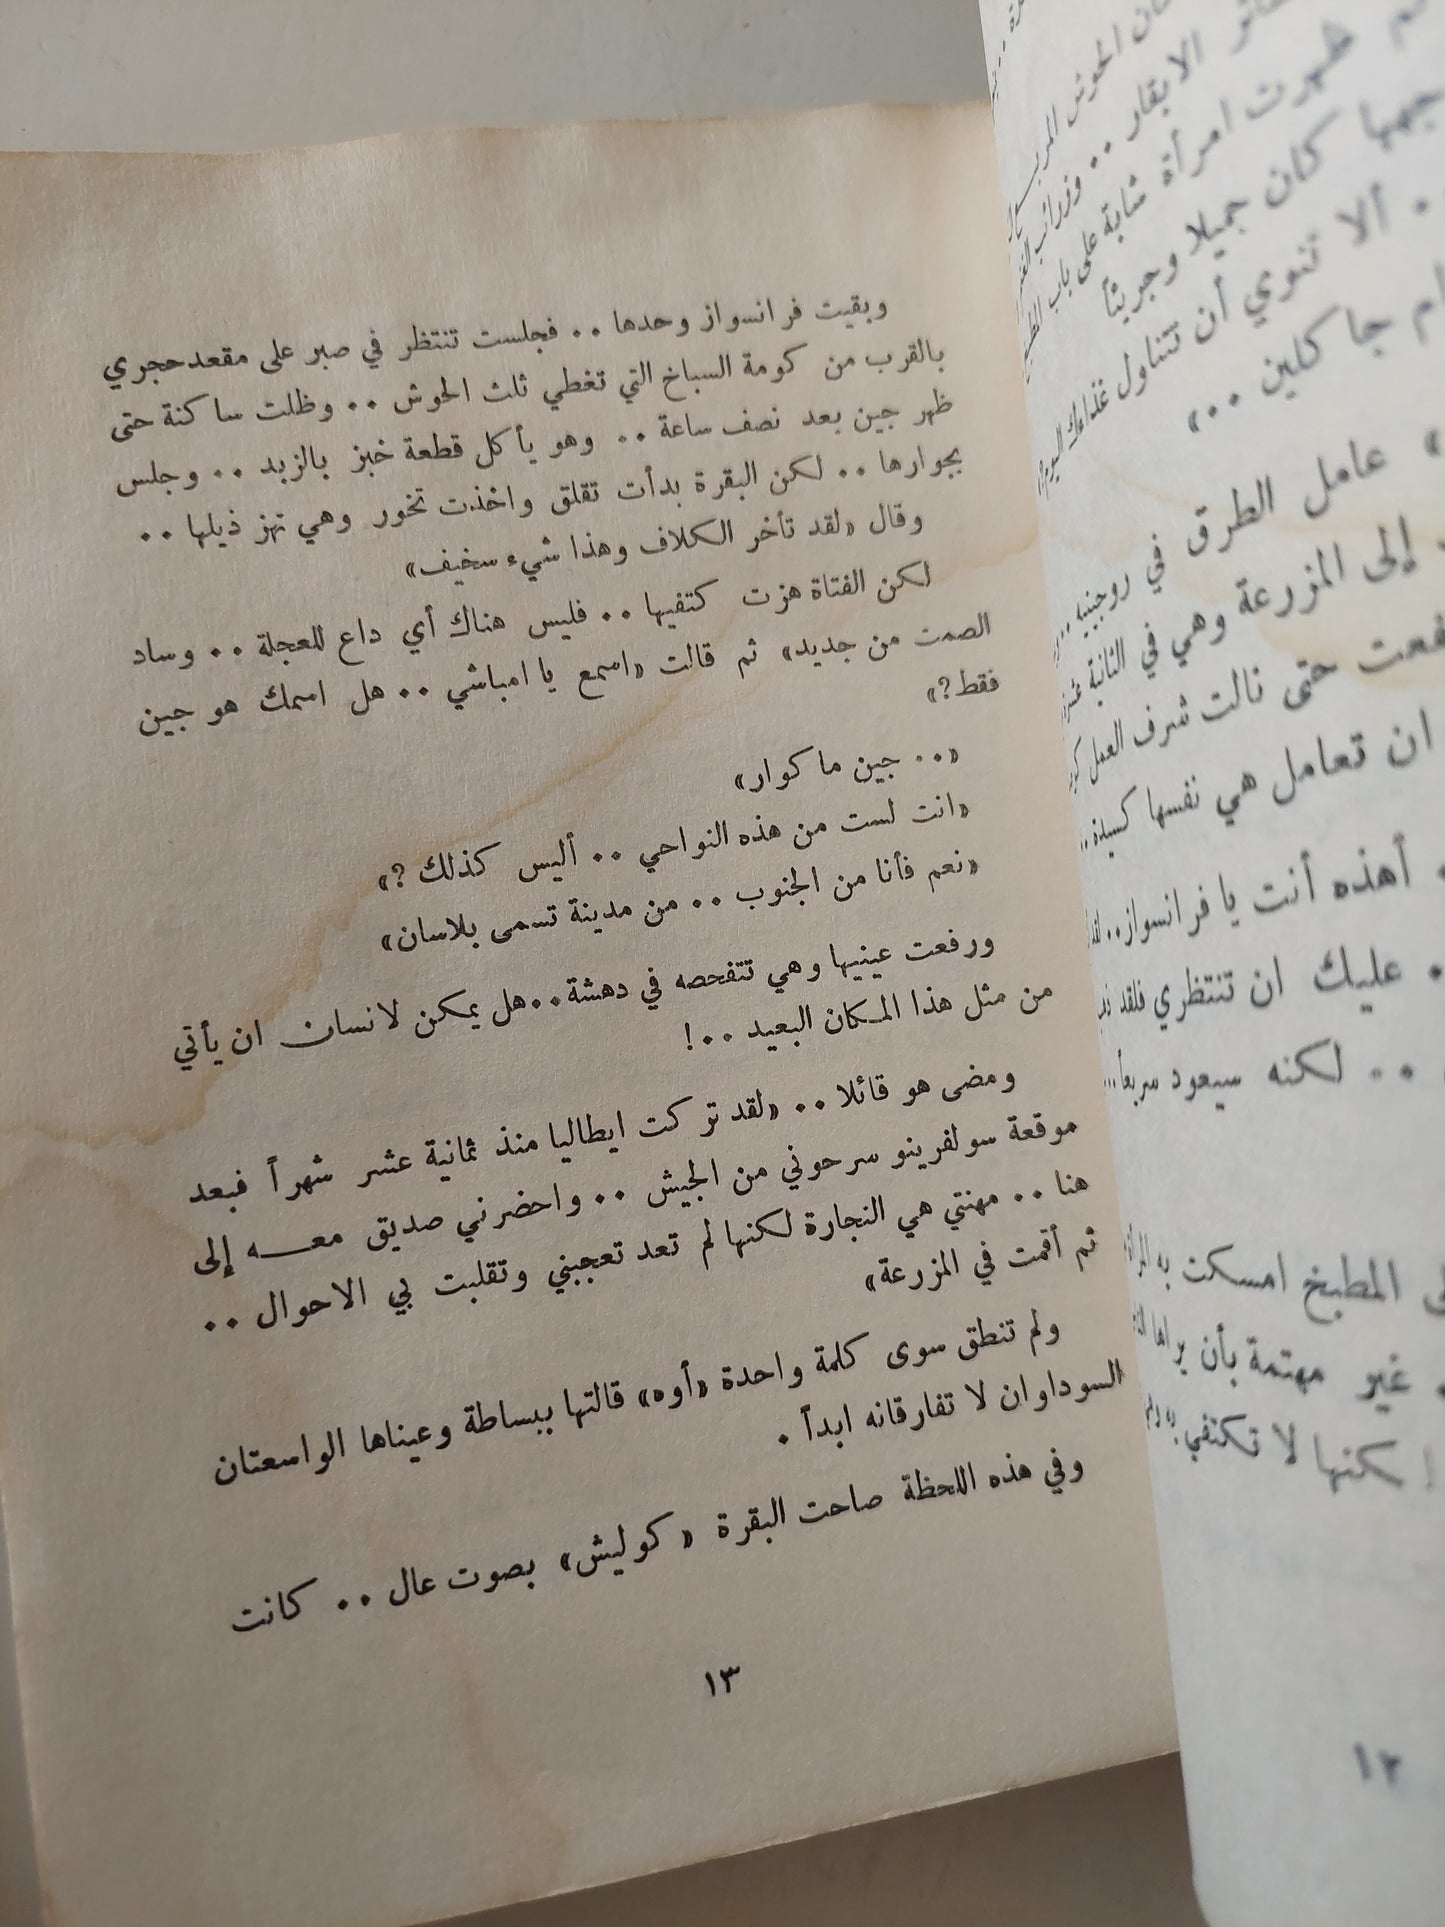 وبقيت فرانسواز وحدها .. فجلست تنتظر في صبر على مقعد حجري
بالقرب من كومة السباخ التي تغطي ثلث الحوش .. وظلت ساكنة حتى
ظهر جين بعد نصف ساعة .. وهو يأكل قطعة خبز بالزبد .. وجلس
بجوارها .. لكن البقرة بدأت تقلق واخذت تخور وهي تهز ذيلها ..
وقال «لقد تأخر الكلاف وهذا شيء سخيف»
لكن الفتاة هزت كتفيها .. فليس هناك أي داع للعجلة .. وساد
الصمت من جديد» ثم قالت «اسمع يا امباشي .. هل اسمك هو جين
فقط؟»
«.. جين ماكوار»
«انت لست من هذه النواحي .. أليس كذلك ؟»
«نعم فأنا من الجنوب .. من مدينة تسمى بلاسان»
ورفعت عينيها وهي تتفحصه في دهشة .. هل يمكن لانسان ان يأتي
من مثل هذا المكان البعيد ..!
ومضى هو قائلا .. «لقد تركت ايطاليا منذ ثمانية عشر شهراً فبعد
موقعة سولفرينو سرحوني من الجيش .. واحضرني صديق معه إلى
هنا .. مهنتي هي النجارة لكنها لم تعد تعجبني وتقلبت بي الاحوال ..
ثم أقمت في المزرعة»
ولم تنطق سوى كلمة واحدة «أوه» قالتها ببساطة وعيناها الواسعتان
السوداوان لا تفارقانه ابداً .
وفي هذه اللحظة صاحت البقرة «كوليش» بصوت عال .. كانت
١٣
الحوش
الابقار .. وزرائب
ظهرت امرأة شابة على باب
كان جميلا وجريئاً
. ألا تنوي أن تتناول غذاءك اليوم
جاكلين ..»
عامل الطرق في روجنييه ..
إلى المزرعة وهي في الثانية
حتى نالت شرف العمل
ان تعامل هي نفسها كسيدة ..
أهذه أنت يا فرانسواز ..
. عليك ان تنتظري فلقد
.. لكنه سيعود سريعاً ...
المطبخ امسكت به
غير مهتمة بأن يراها
لا تكتفي به
١٢